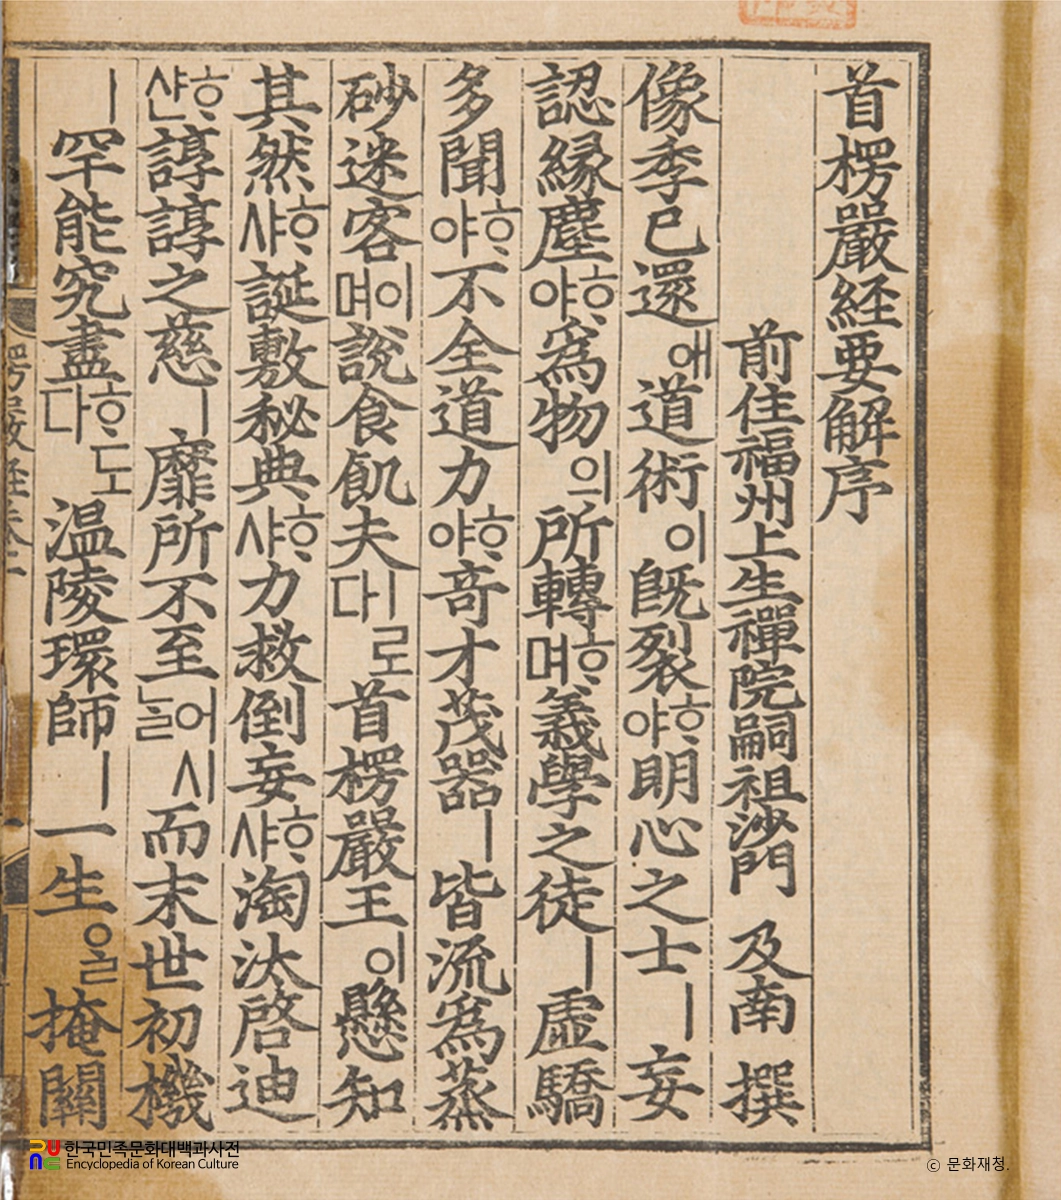 首楞嚴経要解序
前住福州上生禪院嗣祖沙門 及南 撰
像季已還애道術이旣裂ᄒᆞ야明心之士ㅣ妄
認緣塵ᄒᆞ야爲物의所轉ᄒᆞ며義學之徒ㅣ虛驕
多聞ᄒᆞ야不全道力ᄒᆞ야竒才茂器ㅣ皆流爲蒸
砂迷客이며說食飢夫ㅣ로다首楞嚴王이懸知
其然ᄒᆞ샤誕敷秘典ᄒᆞ샤力救倒妄ᄒᆞ샤淘汰啓迪
ᄒᆞ샨諄諄之慈ㅣ靡所不至어시늘而末世初機
ㅣ罕能究盡ᄒᆞ도다溫陵環師ㅣ一生을掩關
한국민족문화대백과사전
Encyclopedia of Korean Culture
ⓒ 문화재청.